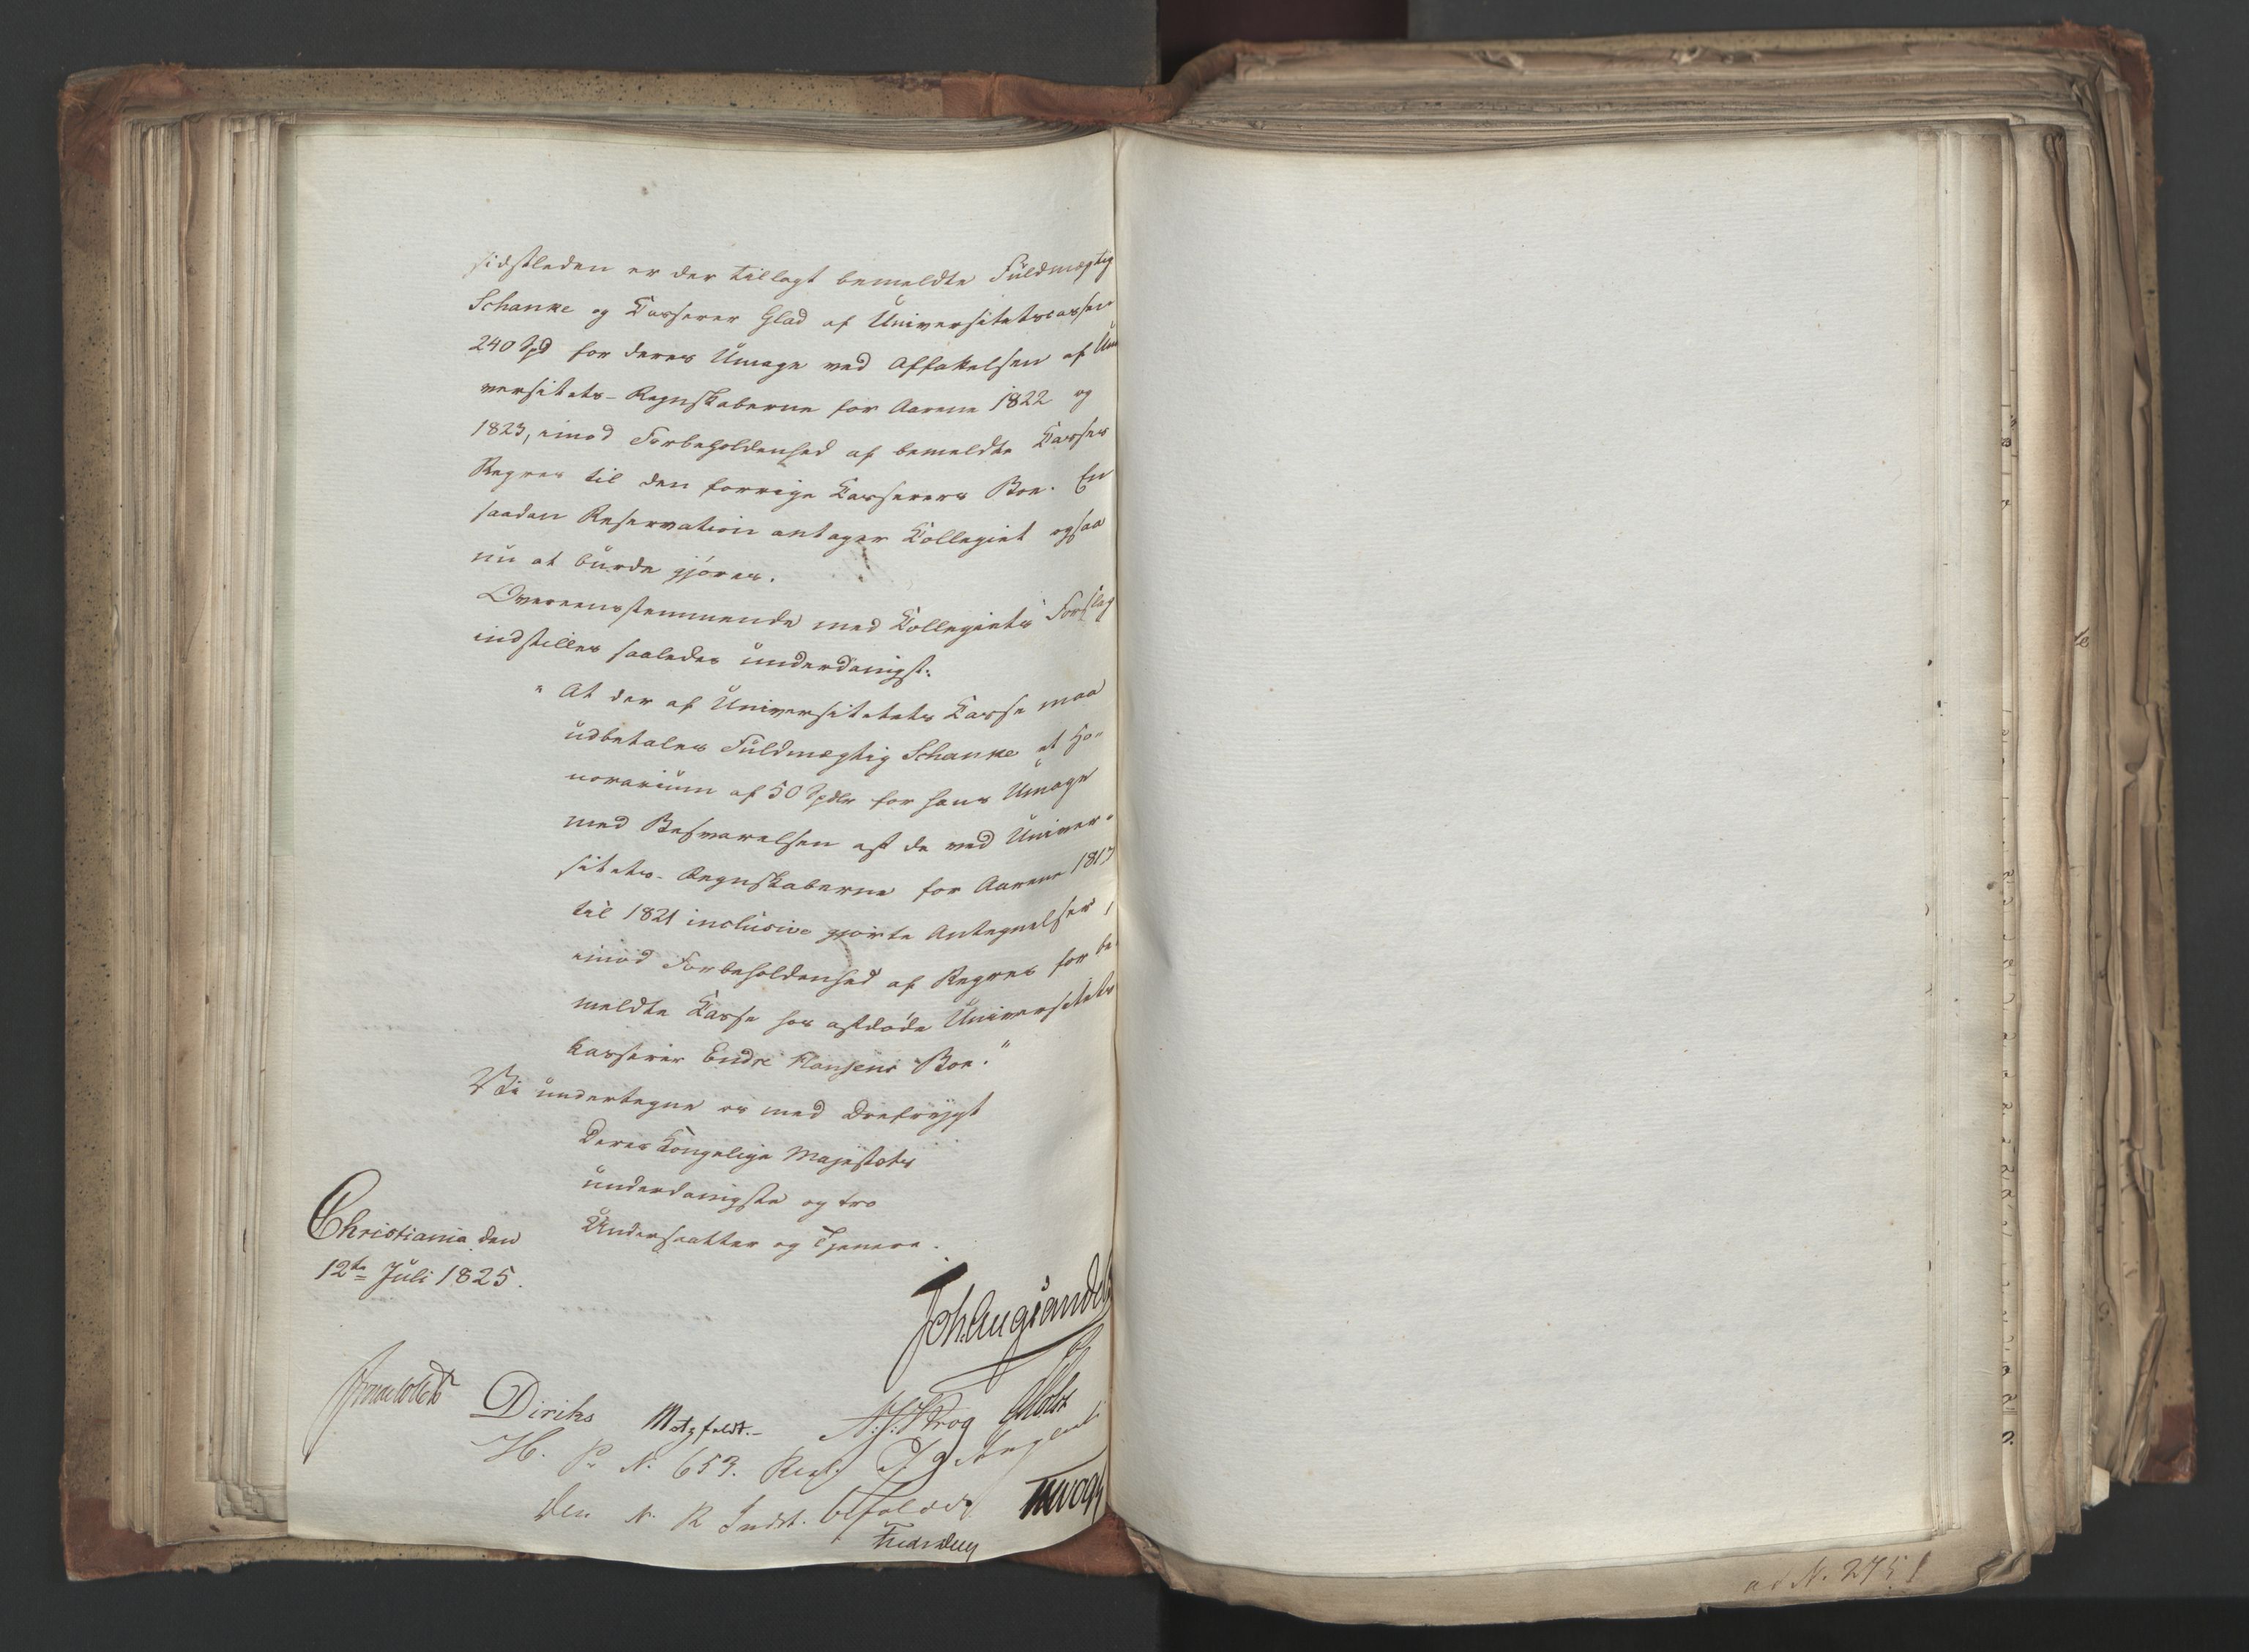 sidstleden er der tillagt bemeldte Fuldmægtig
Schanke og Kasserer Glad af Universitetscassen
240 Spd for deres Umage ved Affattelsen af Uni
versitets-Regnskaberne for Aarene 1822 og
1823, imod Forbeholdenhed af bemeldte Kasses
Regres til den forrige Kasserers Boe. En
saadan Reservation antager Kollegiet ogsaa
nu at burde gjøres.
Overeensstemmende med Kollegiets Forslag
indstilles saaledes underdanigst:
" At der af Universitetets Kasse maa
udbetales Fuldmægtig Schanke et Ho-
norarium af 50 Spdlr for hans Umage
med Besvarelsen af de ved Univer-
sitets-Regnskaberne for Aarene 1817
til 1821 inclusive gjorte Antegnelser,
imod Forbeholdenhed af Regres for be-
meldte Kasse hos afdøde Universitets
kasserer Endre Hansens Boe."
Vi undertegne os med Drefrygt
Deres Kongelige Majestæts
underdanigste og tro
Undersaatter og Tjenere.
Christiania den
12te Juli 1825.
Joh. Aug. Sandels
Diriks Motzfeldt. Krog Holst
H. P. N. 653.
den N. R. Indst. bifaldes
ad N. 275